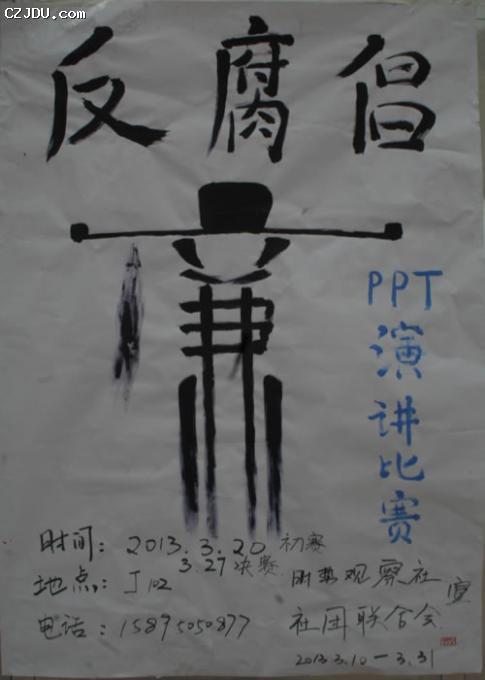 CZJDU.COM
反腐倡
廉
PPT
演讲比赛
时间：2013.3.20 初赛
3.27 决赛
地点：J102
电话：15895050877
时势观察社
社团联合会
宣
2013.3.10—3.31